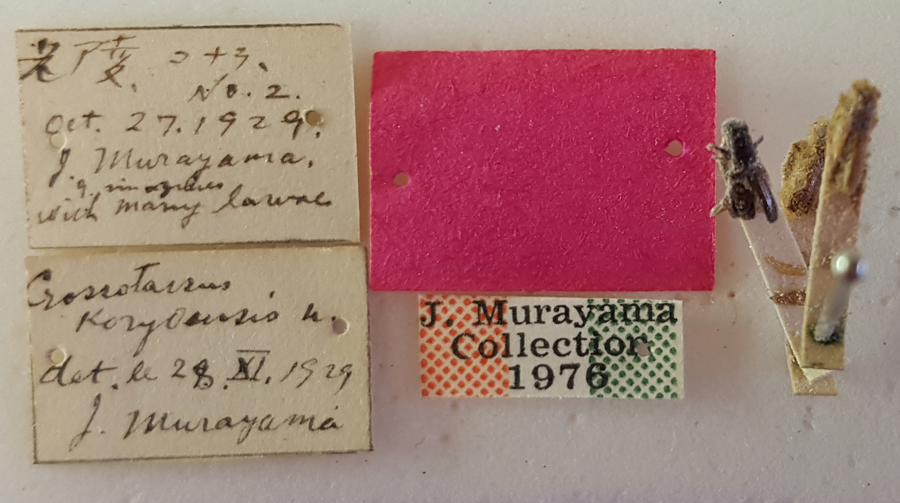 光陵. 2+3.
No. 2.
Oct. 27. 1929.
J. Murayama.
with many larvae
Crossotarsus
Koryoensis n.
det. le 28. XI. 1929
J. Murayama
J. Murayama
Collection
1976